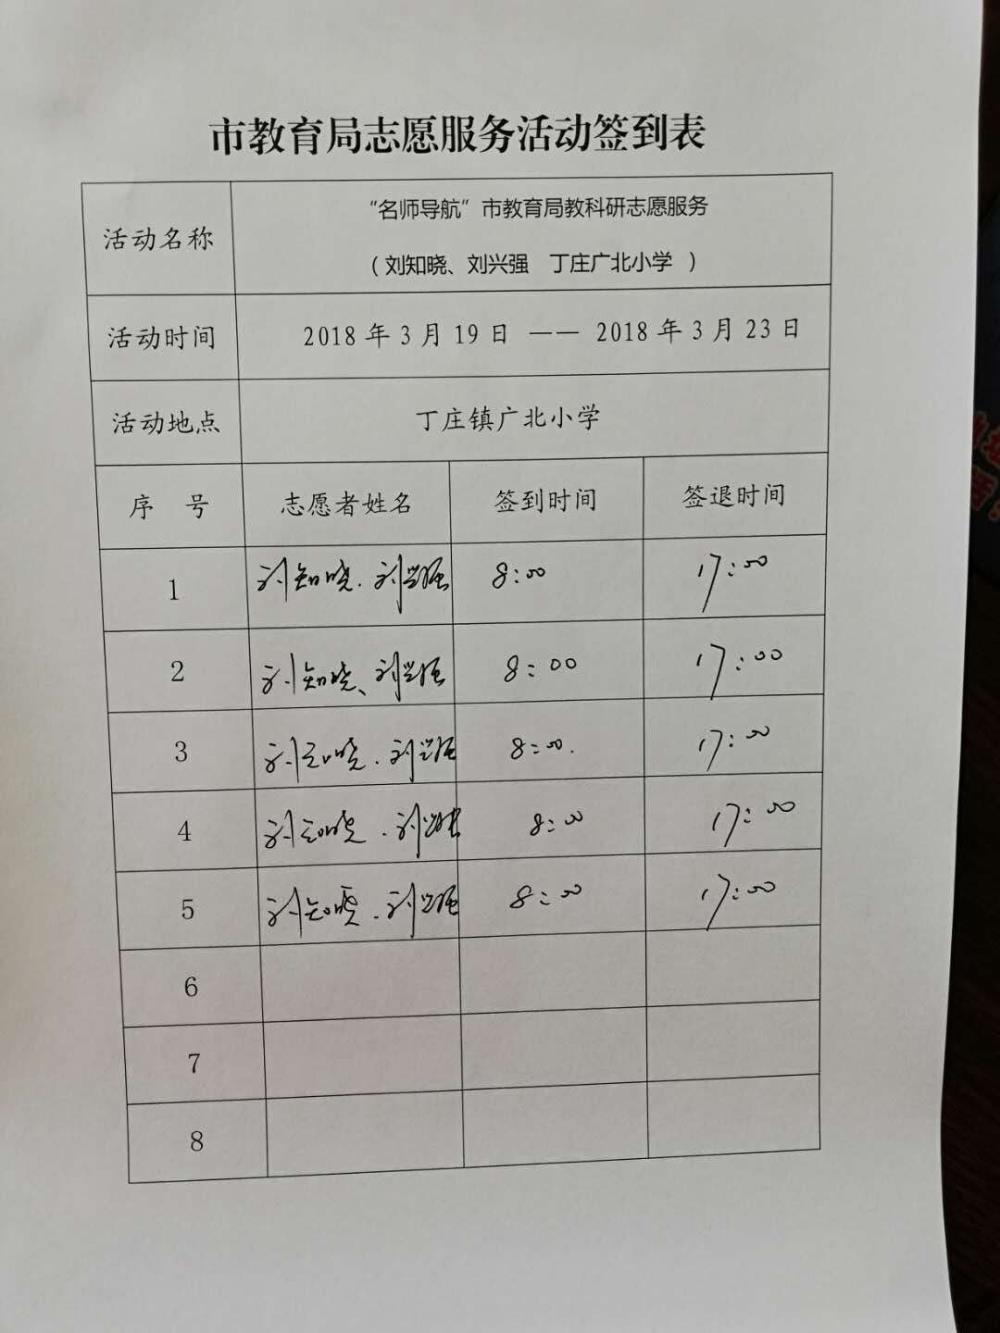 市教育局志愿服务活动签到表
活动名称
“名师导航”市教育局教科研志愿服务
（刘知晓、刘兴强 丁庄广北小学 ）
活动时间 2018 年 3 月 19 日 —— 2018 年 3 月 23 日
活动地点 丁庄镇广北小学
序 号 志愿者姓名 签到时间 签退时间
1 刘知晓.刘兴强 8:00 17:00
2 刘知晓、刘兴强 8:00 17:00
3 刘知晓.刘兴强 8:00. 17:00
4 刘知晓.刘兴强 8:00 17:00
5 刘知晓.刘兴强 8:00 17:00
6
7
8